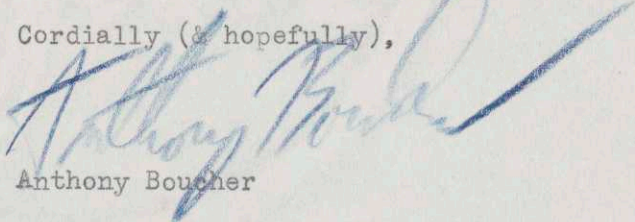 Cordially (& hopefully),
Anthony Boucher
Anthony Boucher